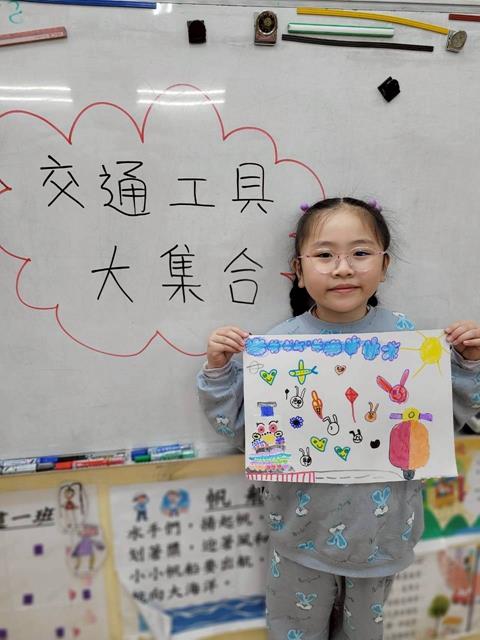 交通工具
大集合
一班
帆
水手們，揚起帆，
划著槳，迎著風和
小小帆船要出航，
航向大海洋。